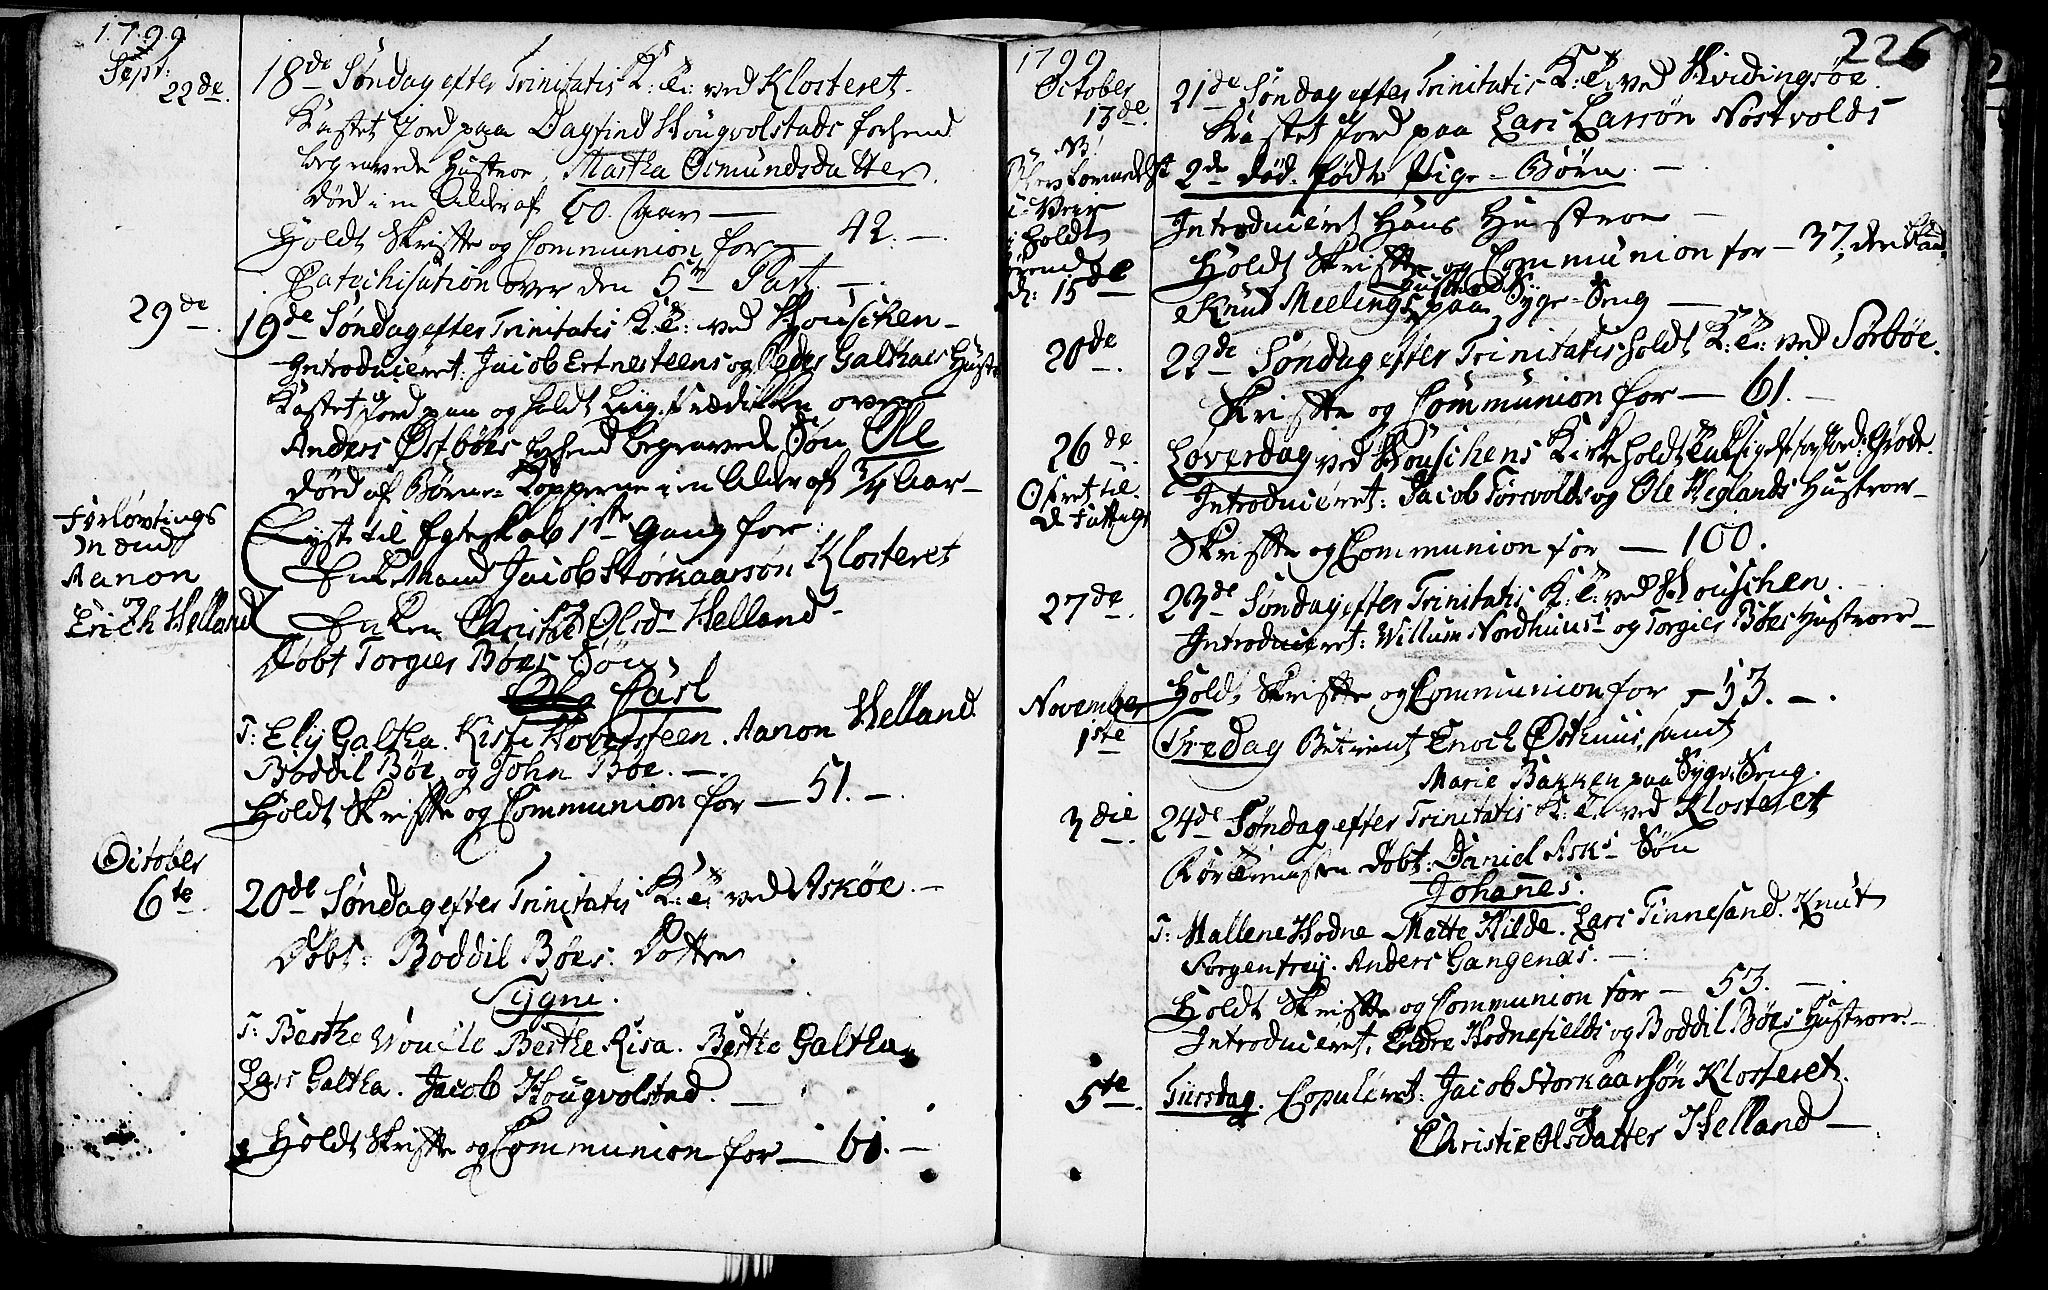 1799
Sept:
22de.
18de Søndag efter Trinitatis K: T: ved Klosteret.
Kastet Jord paa Dagfind Hougvolstads forhend
begravede Hustroe, Martha Osmundsdatter.
Død i en Alder af 60. Aar —
Holdt Skrifte og Communion for — 42. —
Catechisation over den 5te Part. —
29de.
19de Søndag efter Trinitatis K: T: ved Houschen —
Introduceret: Jacob Ertnesteens og Peder Galthaes Hustr
Kastet Jord paa og holdt Liig Prædicken over
Anders Østbøes forhend begravede Søn Ole
død af Børne-Kopperne i en Alder af 3/4 Aar —
Forlovtings
Mænd
Aanon
og
Erich Helland
Lyst til Egteskab 1ste Gang for:
Enkemand Jacob Storkaarsøn Klosteret
og
Enken Christie Olsd. Helland —
Døbt Torgies Bøes Søn
Carl
T: Elij Galtha. Kisti Hoversteen. Aanon Helland.
Boddil Bøe og John Bøe. —
Holdt Skrifte og Communion for — 51. —
October
6te
20de Søndag efter Trinitatis K: T: ved Askøe. —
Døbt: Boddil Bøes: Datter
Sygni.
T: Berthe Woulle Berthe Risa. Berthe Galtha.
Lars Galtha. Jacob Hougvolstad. —
Holdt Skrifte og Communion for — 61. —
226
1799
October
13de.
21de Søndag efter Trinitatis K: T: ved Hvidingsøe.
Kastet Jord paa Lars Larsøn Nostvolds
2de død-fødte Pige-Børn. —
Introduceret Hans Hustroe —
NB
i Veir
holdt
15de
Holdt Skrifte og Communion for — 37, den
Knut Meelings Hustroe paa Syge-Seng —
20de
22de Søndag efter Trinitatis holdt K: T: ved Sørbøe.
Skrifte og Communion for — 61. —
26de
Ofret til
d Fattige
Løverdag ved Houschens Kirke holdt Taksigelse for Jordens Grøde.
Introduceret: Jacob Torsvolds og Ole Heglands Hustroer —
Skrifte og Communion for — 100.
27de.
23de Søndag efter Trinitatis K: T: ved Houschen.
Introduceret: Willum Nordhuus og Torgies Bøes Hustroer —
Holdt Skrifte og Communion for — 53. —
November
1ste
Fredag Betient Enoch Østhuus, samt
Marie Bakken paa Syge-Seng.
3die
24de Søndag efter Trinitatis K: T: ved Klosteret
døbt: Daniel Asks Søn
Johanes.
T: Mallene Hodne Mette Hilde. Lars Finnesand. Knut
Sorgenfrey. Anders Gangenæs. —
Holdt Skrifte og Communion for — 53. —
Introduceret, Endre Hodnefields og Boddil Bøes Hustroer. —
5te
Tiirsdag. Copuleret: Jacob Storkaarsøn Klosteret.
og
Christie Olsdatter Helland —